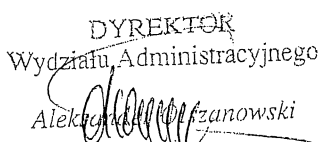 DYREKTOR
Wydziału Administracyjnego
Olszanowski